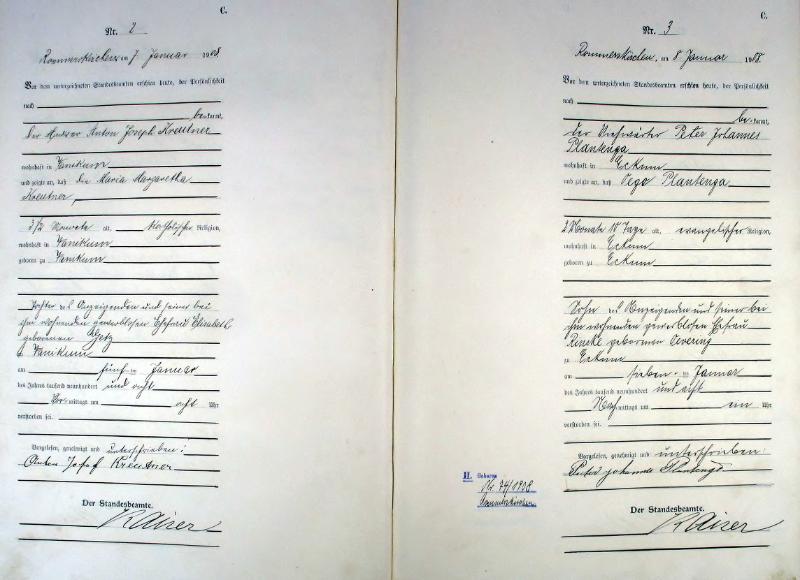 C.
Nr. 2
Rommerskirchen am 7 Januar 1908
Vor dem unterzeichneten Standesbeamten erschien heute, der Persönlichkeit
nach
be kannt,
der Anton Joseph Kreutner
wohnhaft in Vanikum
und zeigte an, daß die Maria Margaretha
Kreutner,
3 1/2 Monate alt, katholischer Religion,
wohnhaft in Vanikum
geboren zu Vanikum
Tochter des Anzeigenden und seiner bei
ihm wohnenden gewerblosen Ehefrau Elisabeth
geborenen Getz
zu Vanikum
am fünften Januar
des Jahres tausend neunhundert und acht
Vor mittags um acht Uhr
verstorben sei.
Vorgelesen, genehmigt und unterschrieben:
Anton Josef Kreutner
Der Standesbeamte.
Kaiser
C.
Nr. 3
Rommerskirchen, am 8 Januar 1908
Vor dem unterzeichneten Standesbeamten erschien heute, der Persönlichkeit
nach
be kannt,
der Viehwärter Peter Johannes
Plantenga
wohnhaft in Eckum
und zeigte an, daß Oege Plantenga
2 Monate 18 Tage alt, evangelischer Religion,
wohnhaft in Eckum
geboren zu Eckum
Sohn des Anzeigenden und seiner bei
ihm wohnenden gewerblosen Ehefrau
Rinske geborenen Oevering
zu Eckum
am sieben ten Januar
des Jahres tausend neunhundert und acht
Nach mittags um ein Uhr
verstorben sei.
Vorgelesen, genehmigt und unterschrieben:
Peter Johannes Plantenga
Der Standesbeamte.
Kaiser
II. Geboren
Nr. 74/1908